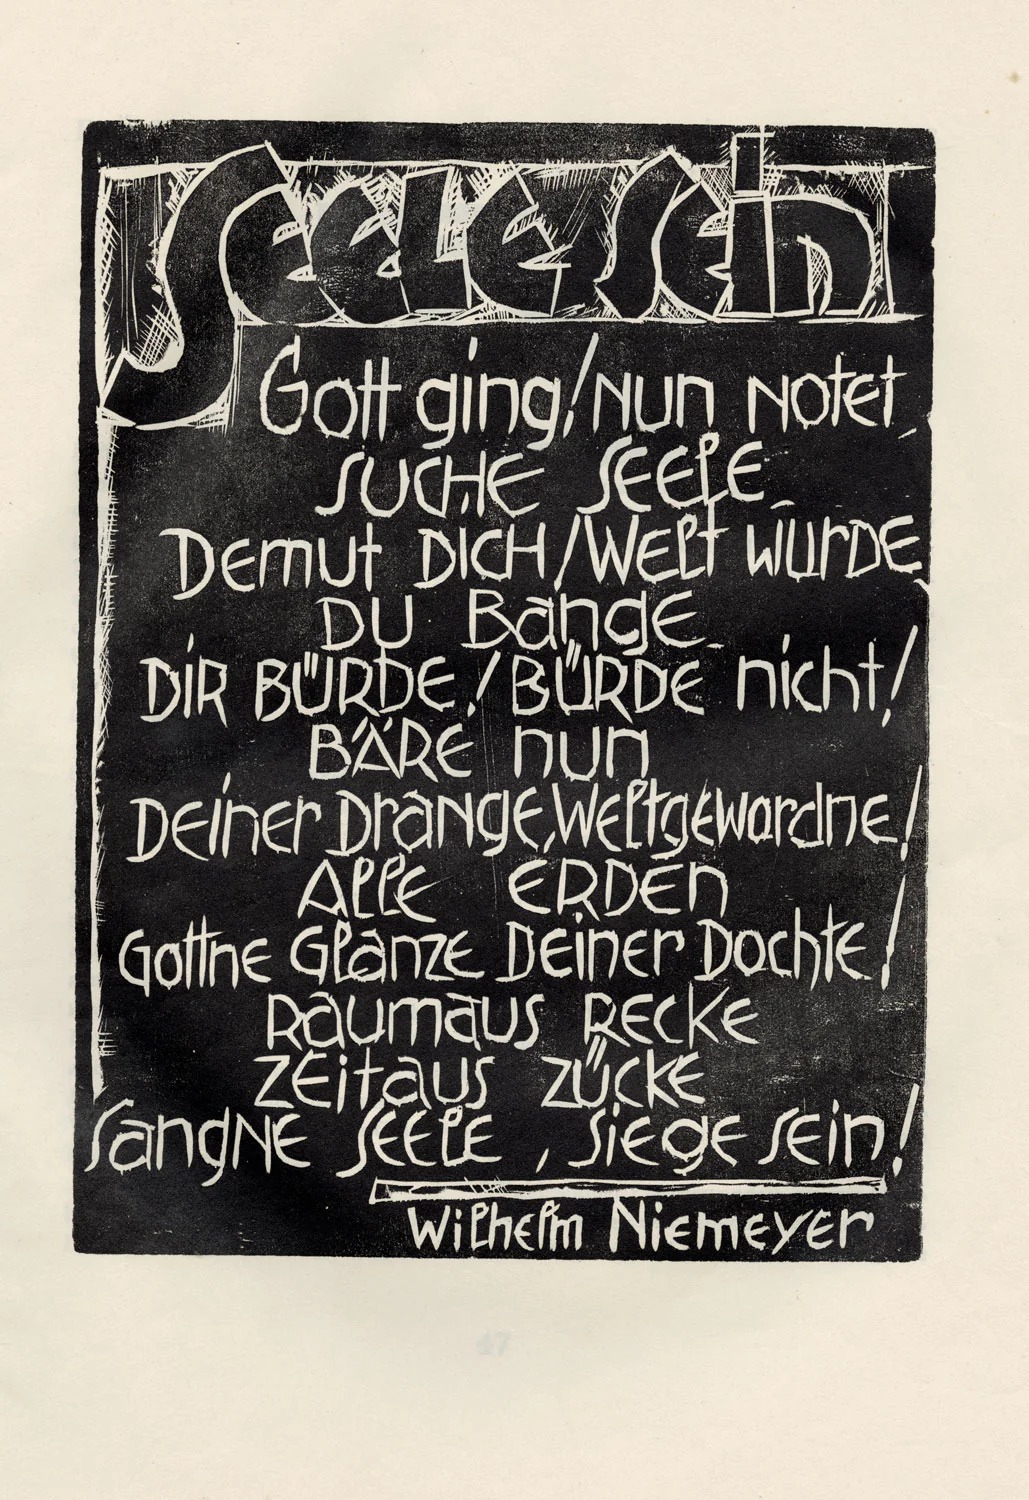 Seelesein
Gott ging! Nun notet
SUCHE SEELE
Demut DICH / Welt würde
DU Bange
DIR BÜRDE! BÜRDE nicht!
BÄRE nun
Deiner Drange, Weltgewordne!
Alle ERDEN
Gottne Glanze Deiner Dochte!
Raumaus RECKE
ZEitaus ZÜCKE
SangNE SEELE, Siege sein!
Wilhelm Niemeyer